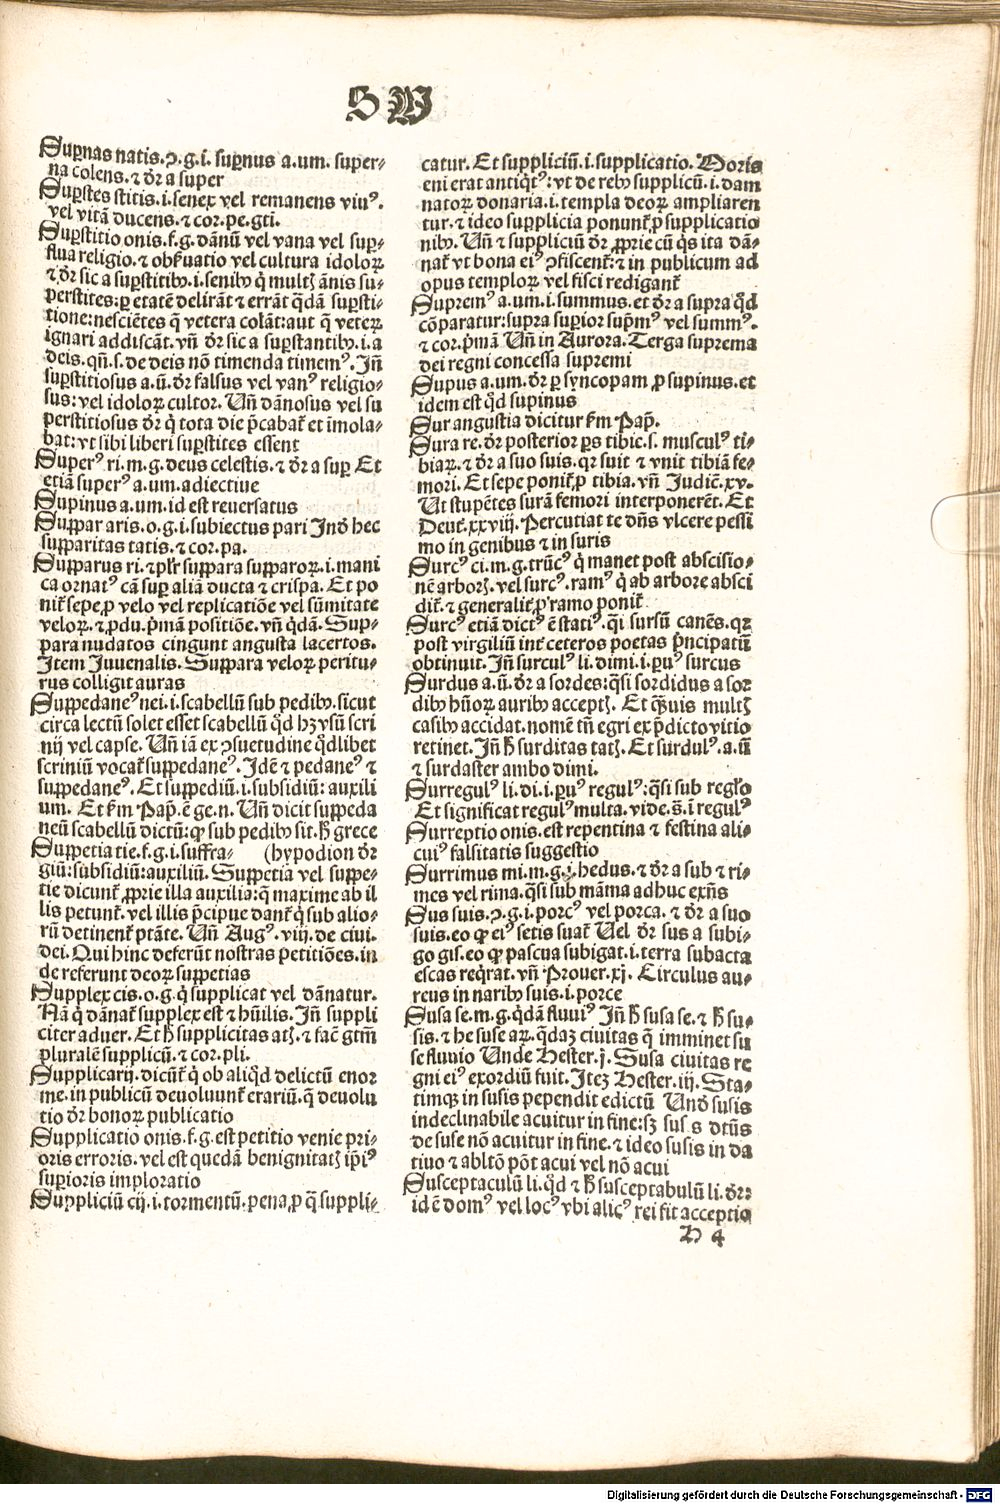 S U
Suꝑnas natis.ꝯ.g.i. suꝑnus a.um. super-
na colens.⁊ dr̄ a super
Suꝑstes stitis.i.senex vel remanens viuꝰ.
vel vitā ducens.⁊ cor.pe.gti.
Suꝑstitio onis.f.g.dānū vel vana vel suꝑ-
flua religio.⁊ obſuatio vel cultura idoloꝝ
⁊ dr̄ sic a suꝑstitibꝰ.i.senibꝰ q̇ multꝭ ānis su-
perstites:ꝑ etatē delirāt ⁊ errāt q̄dā suꝑsti-
tione:nesciētes q̄ vetera colāt:aut q̄ veteꝝ
ignari addiscāt.vn̄ dr̄ sic a suꝑstantibꝰ.i.a
deis.qn̄.s.de deis nō timenda timemꝰ.Jn̄
suꝑstitiosus a.ū.dr̄ falsus vel vanꝰ religio-
sus:vel idoloꝝ cultor. Un̄ dānosus vel su
perstitiosus dr̄ q̇ tota die p̄cabat̄ et īmola-
bat:vt sibi liberi suꝑstites essent
Superꝰ ri.m.g.deus celestis.⁊ dr̄ a suꝑ Et
etiā superꝰ a.um.adiectiue
Supinus a.um.id est reuersatus
Suppar aris.o.g.i.subiectus pari Jnd̄ hec
supparitas tatis.⁊ cor.pa.
Supparus ri.⁊ plr̄ suppara supparoꝝ.i.mani
ca ornatꝰ cā suꝑ aliā ducta ⁊ crispa. Et po
nit̄ sepe ꝓ velo vel replicatiōe vel sūmitate
veloꝝ.⁊ ꝓdu.p̄mā positiōe.vn̄ q̄dā. Sup-
para nudatos cingunt angusta lacertos.
Item Juuenalis. Suppara veloꝝ peritu-
rus colligit auras
Suppedaneꝰ nei.i.scabellū sub pedibꝰ.sicut
circa lectū solet esse scabellū q̄d hꝫ vsū scri
nij vel capse. Un̄ iā ex ꝯsuetudine q̄dlibet
scriniū vocat̄ suppedaneꝰ.Idē ⁊ pedaneꝰ ⁊
suppedaneꝰ. Et suppediū.i.subsidiū:auxili
um. Et fm̄ Pap̄.ē ge.n. Un̄ dicit suppeda
neū scabellū dictū:ꝙ sub pedibꝰ sit.h̄ grece
Suppetia tie.f.g.i.suffra- (hypodion dr̄
giū:subsidiū:auxiliū. Suppetia vel suppe-
tie dicunt̄ ꝓprie illa auxilia:q̄ maxime ab il
lis petunt̄.vel illis p̄cipue dant̄ q̇ sub alio-
rū detinent̄ ptāte. Un̄ Augꝰ.viij.de ciui.
dei.Qui hinc deferūt nostras petitiōes.in
de referunt deoꝝ suppetias
Supplex cis.o.g.q̇ supplicat vel dānatur.
Nā q̇ dānat̄ supplex est ⁊ hūilis. Jn̄ suppli
citer aduer. Et h̄ supplicitas atꝭ.⁊ fac̄ gtm̄
pluralē supplicū.⁊ cor.pli.
Supplicarij.dicūt̄ q̇ ob aliq̄d delictū enor
me.in publicū deuoluunt̄ erariū.q̄ deuolu
tio dr̄ bonoꝝ publicatio
Supplicatio onis.f.g.est petitio venie pri-
oris erroris.vel est quedā benignitatꝭ ip̄iꝰ
suꝑioris imploratio
Suppliciū cij.i.tormentū.pena ꝓ q̄ suppli-
catur. Et suppliciū.i.supplicatio. Moris
eni erat antiq̄tꝰ:vt de rebꝰ supplicū.i.dam
natoꝝ donaria.i.templa deoꝝ ampliaren
tur.⁊ ideo supplicia ponunt̄ ꝓ supplicatio
nibꝰ. Un̄ ⁊ suppliciū dr̄ ꝓprie cū q̇s ita dā-
nat̄ vt bona eiꝰ ꝯfiscent̄:⁊ in publicum ad
opus temploꝝ vel fisci redigant̄
Supremꝰ a.um.i.summus.et dr̄ a supra q̄d
cōparatur:supra suꝑior sup̄mꝰ vel summꝰ.
⁊ cor.p̄mā Un̄ in Aurora. Terga suprema
dei regni concessa supremi
Supus a.um.dr̄ ꝑ syncopam ꝓ supinus.et
idem est q̄d supinus
Sur angustia dicitur fm̄ Pap̄.
Sura re.dr̄ posterior ꝑs tibie.s. musculꝰ ti-
biaꝝ.⁊ dr̄ a suo suis.qꝛ suit ⁊ vnit tibiā fe-
mori. Et sepe ponit̄ ꝓ tibia. vn̄ Judic̄.xv.
Ut stupētes surā femori interponerēt. Et
Deut̄.xxviij. Percutiat te dn̄s vlcere pessi
mo in genibus ⁊ in suris
Surcꝰ ci.m.g.trūcꝰ q̇ manet post abscisio-
nē arborꝭ.vel surcꝰ.ramꝰ q̇ ab arbore absci
dit̄.⁊ generalit̄ ꝓ ramo ponit̄
Surcꝰ etiā dictꝰ ē statiꝰ.q̇i sursū canēs.qꝛ
post virgiliū int̄ ceteros poetas p̄ncipatū
obtinuit. Jn̄ surculꝰ li.dimi.i.ꝑuꝰ surcus
Surdus a.ū.dr̄ a sordes:q̄si sordidus a sor
dibꝰ hūoꝝ auribꝰ acceptꝭ. Et q̄uis multꝭ
casibꝰ accidat.nomē tn̄ egri ex p̄dicto vitio
retinet. Jn̄ h̄ surditas tatꝭ. Et surdulꝰ.a.ū
⁊ surdaster ambo dimi.
Surregulꝰ li.di.i.ꝑuꝰ regulꝰ:q̄si sub regl̄o
Et significat regulꝰ multa.vide.s̄.ī regulꝰ
Surreptio onis.est repentina ⁊ festina ali-
cuiꝰ falsitatis suggestio
Surrimus mi.m.g.i.hedus.⁊ dr̄ a sub ⁊ ri-
mes vel rima.q̄si sub māma adhuc exn̄s
Sus suis.ꝯ.g.i.porcꝰ vel porca.⁊ dr̄ a suo
suis.eo ꝙ eiꝰ setis suat̄ Uel dr̄ sus a subi-
go gis.eo ꝙ pascua subigat.i.terra subacta
escas req̄rat.vn̄ Prouer.xj. Circulus au-
reus in naribꝰ suis.i.porce
Susa se.m.g.q̄dā fluuiꝰ Jn̄ h̄ susa se.⁊ h̄ su-
sis.⁊ he suse aꝝ.q̄daꝫ ciuitas q̄ imminet su
se fluuio Unde Hester.j. Susa ciuitas re
gni eiꝰ exordiū fuit. Iteꝫ Hester.iij. Sta-
timqꝫ in susis pependit edictū Und̄ susis
indeclinabile acuitur in fine:sꝫ sus s dtūs
de suse nō acuitur in fine.⁊ ideo susis in da
tiuo ⁊ abltō pōt acui vel nō acui
Susceptaculū li.q̄d ⁊ h̄ susceptabulū li.dr̄:
id ē domꝰ vel locꝰ vbi alicꝰ rei fit acceptio
H 4
Digitalisierung gefördert durch die Deutsche Forschungsgemeinschaft - DFG